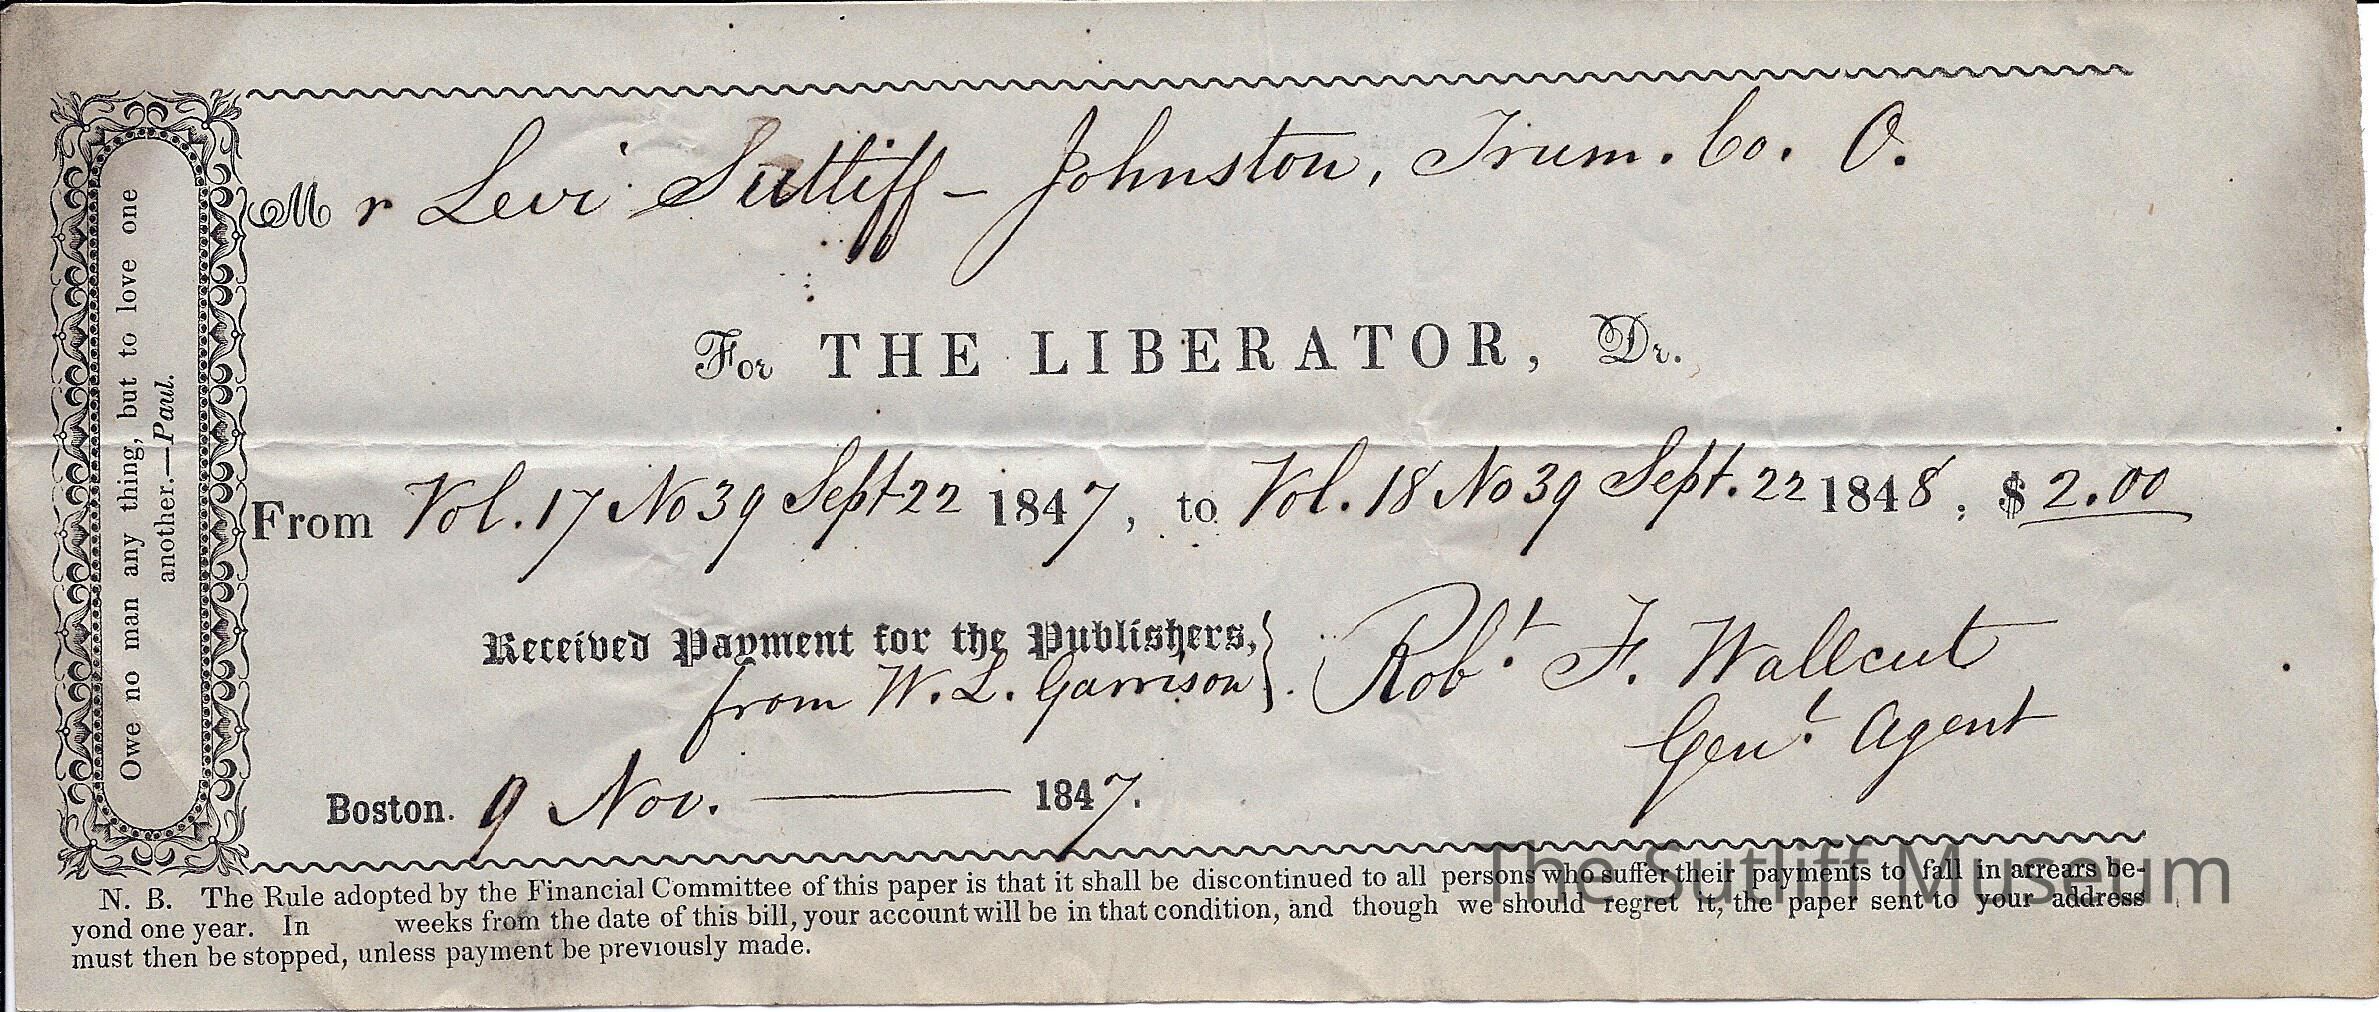 Owe no man any thing, but to love one
another.—Paul.
Mr Levi Sutliff - Johnston, Trum. Co. O.
For THE LIBERATOR, Dr.
From Vol. 17 No 39 Sept 22 1847, to Vol. 18 No 39 Sept. 22 1848, $2.00
Received Payment for the Publishers,
from W. L. Garrison
Robt. F. Wallcut
Genl. Agent
Boston. 9 Nov. — 1847.
N. B. The Rule adopted by the Financial Committee of this paper is that it shall be discontinued to all persons who suffer their payments to fall in arrears be-
yond one year. In weeks from the date of this bill, your account will be in that condition, and though we should regret it, the paper sent to your address
must then be stopped, unless payment be previously made.
The Sutliff Museum